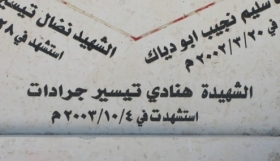 سليم نجيب ابو دياك
م ٢٠٠٢/٣/٢٠
الشهيد نضال تيسير
استشهد في ٢٨
الشهيدة هنادي تيسير جرادات
استشهدت في ٢٠٠٣/١٠/٤ م